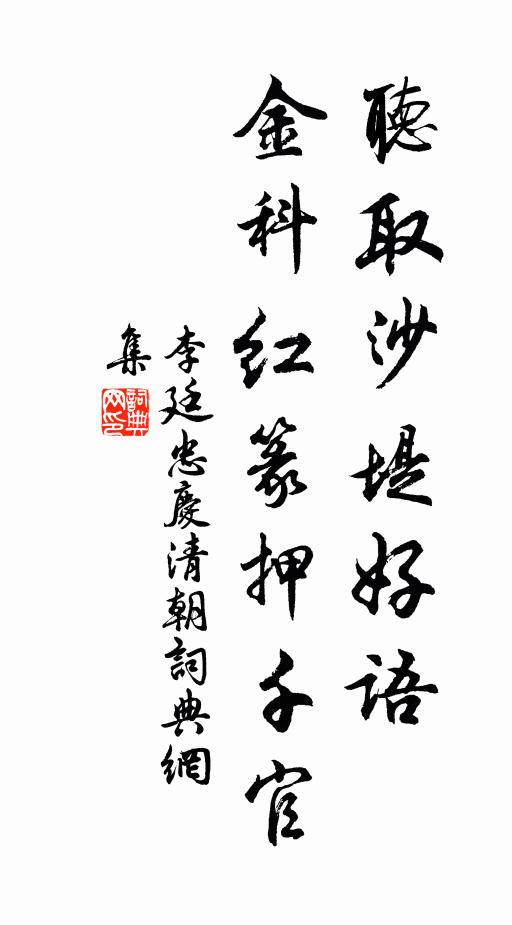 聽取沙堤好語
金科紅篆押千官
李廷忠慶清朝詞典網
集
詞典
网印